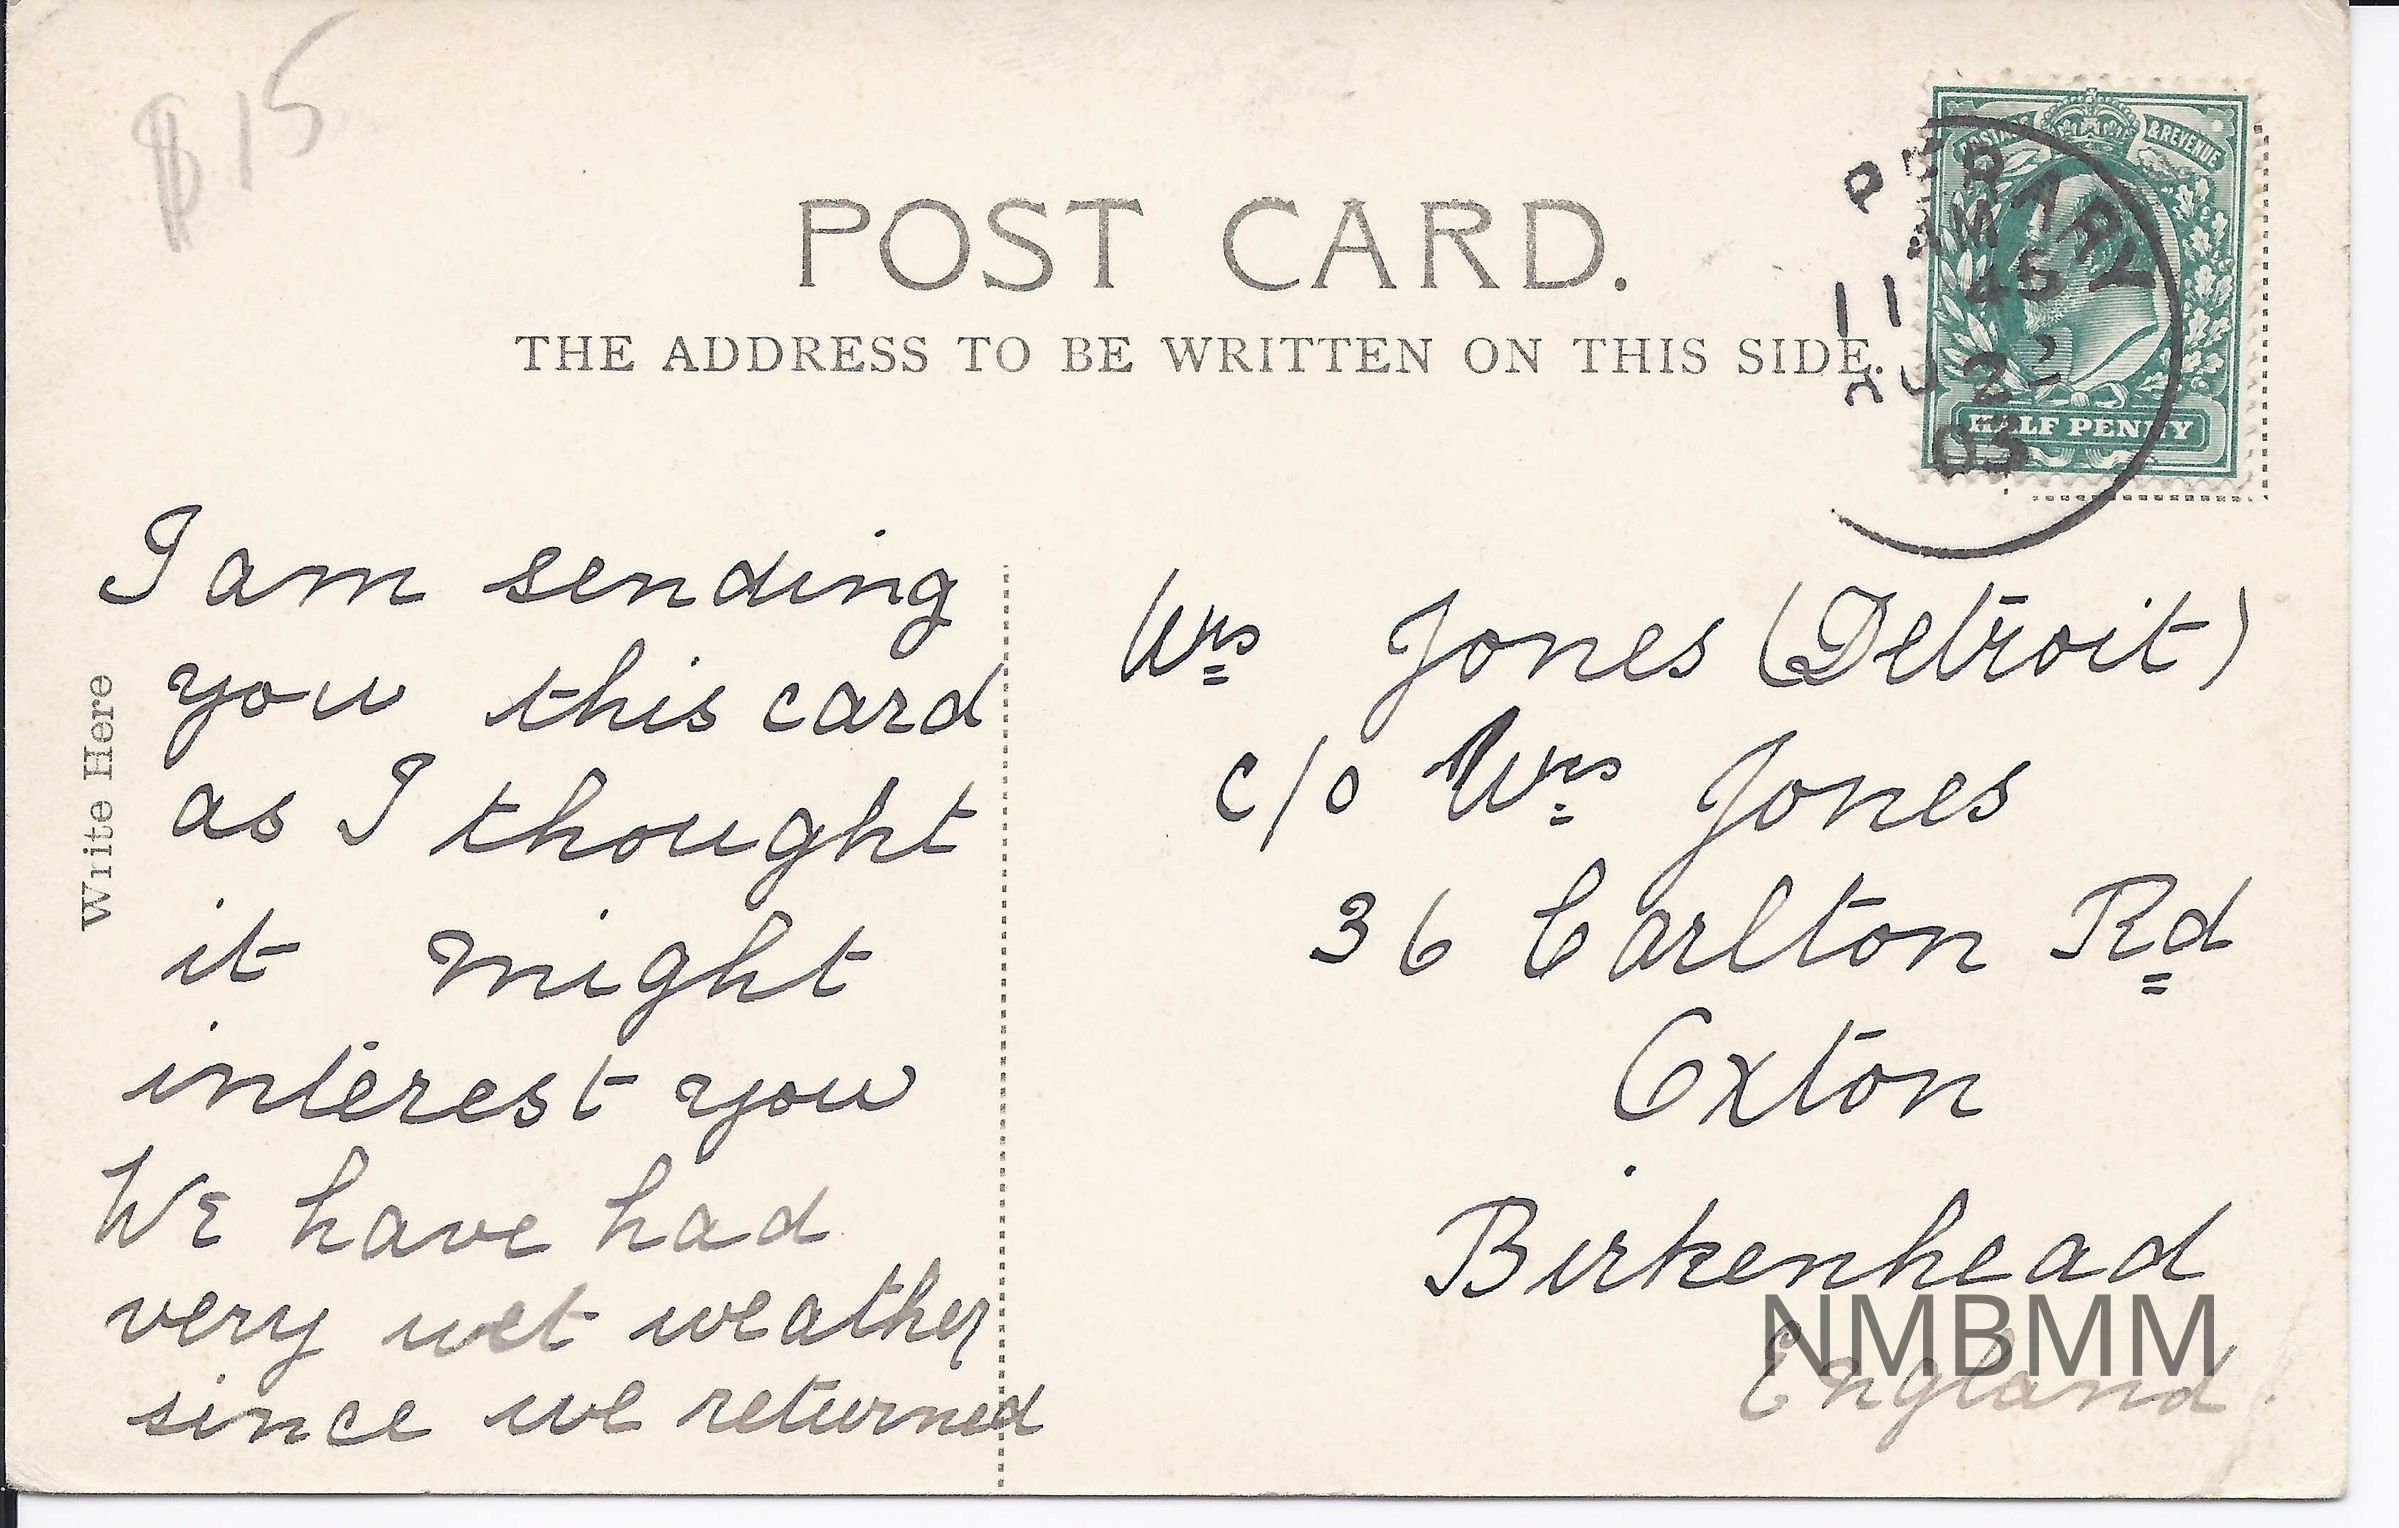 $15
POST CARD.
THE ADDRESS TO BE WRITTEN ON THIS SIDE.
POSTAGE & REVENUE
HALF PENNY
AM
11 45
AU 22
03
Write Here
I am sending
you this card
as I thought
it might
interest you
We have had
very wet weather
since we returned
Mrs Jones (Detroit)
c/o Mrs Jones
36 Carlton Rd
Oxton
Birkenhead
England
NMBMM